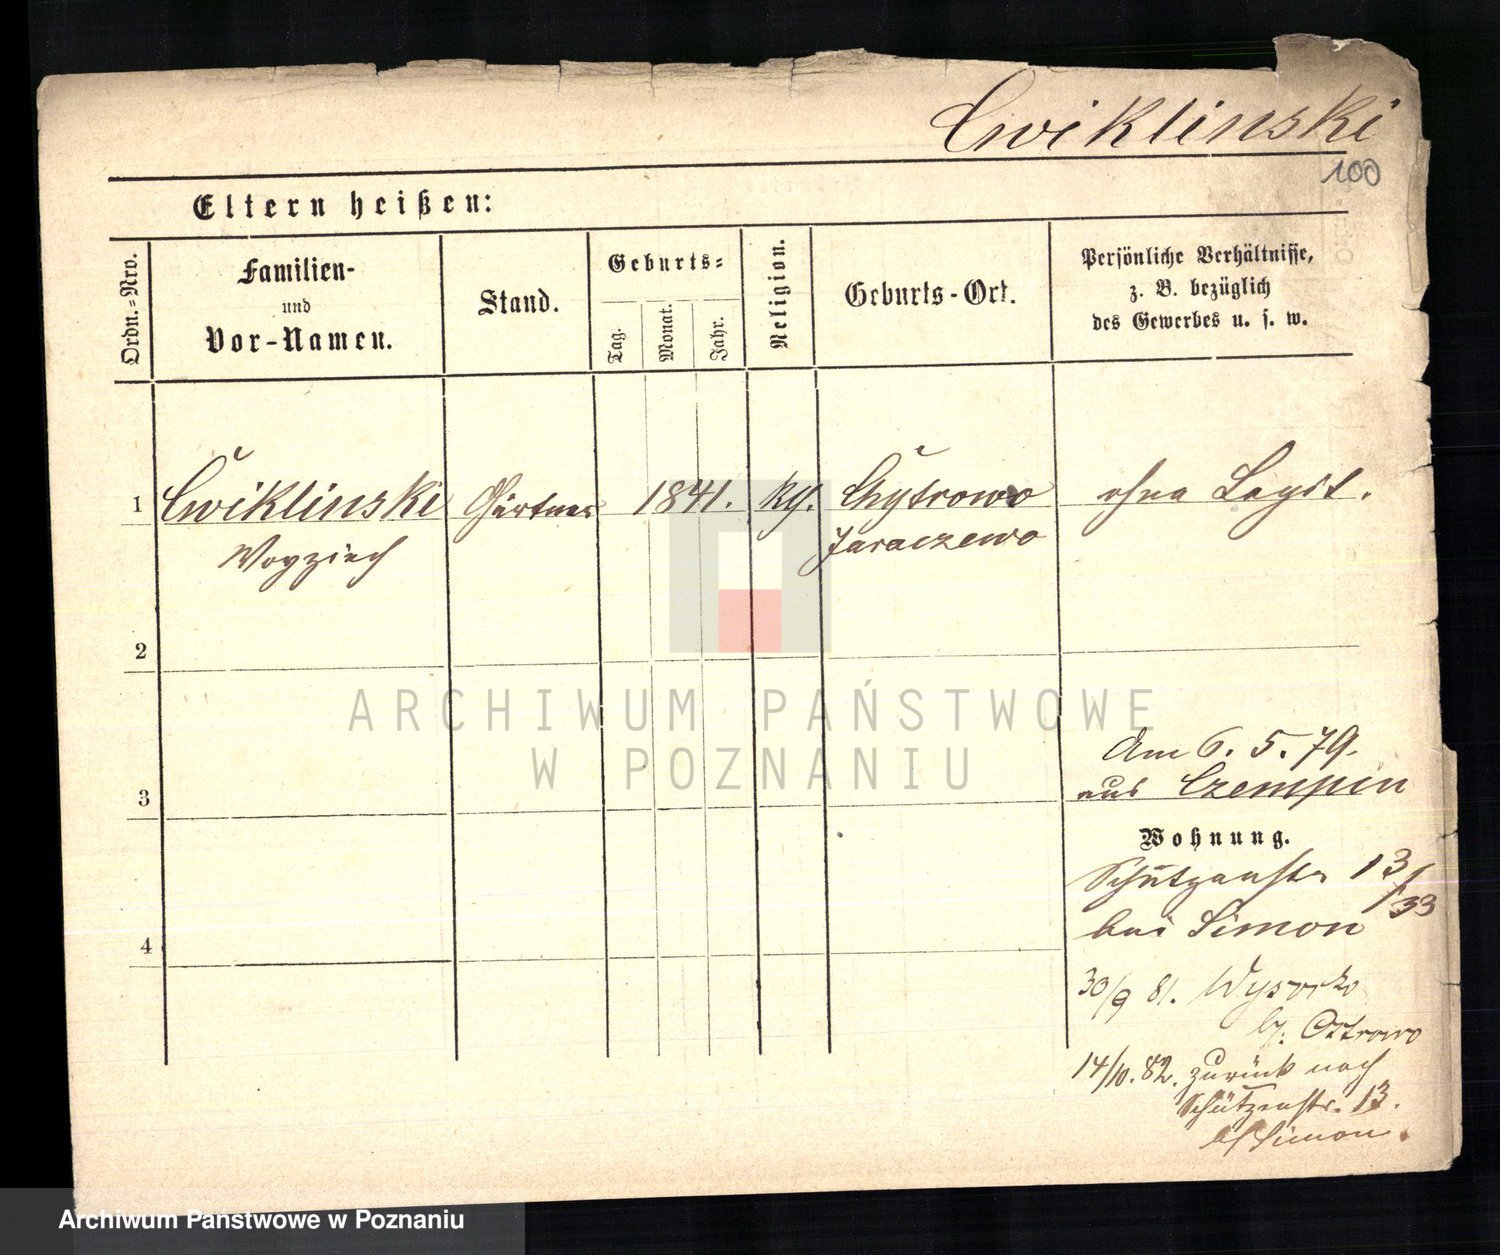 Cwiklinski
100
Eltern heißen:
Ordn.=Nro.
Familien-
und
Vor-Namen.
Stand.
Geburts=
Tag.
Monat.
Jahr.
Religion.
Geburts-Ort.
Persönliche Verhältnisse,
z. B. bezüglich
des Gewerbes u. s. w.
1 Cwiklinski Gärtner 1841. kth. Chytrowo ohne Legit.
Woyziech Jaraczewo
2
ARCHIWUM PAŃSTWOWE
W POZNANIU
Am 6. 5. 79.
3 aus Czempin
Wohnung.
Schützenstr 13/33
4 bei Simon
30/9 81. Wysocko
b/. Ostrowo
14/10. 82. zurück nach
Schützenstr. 13.
b/ Simon.
Archiwum Państwowe w Poznaniu